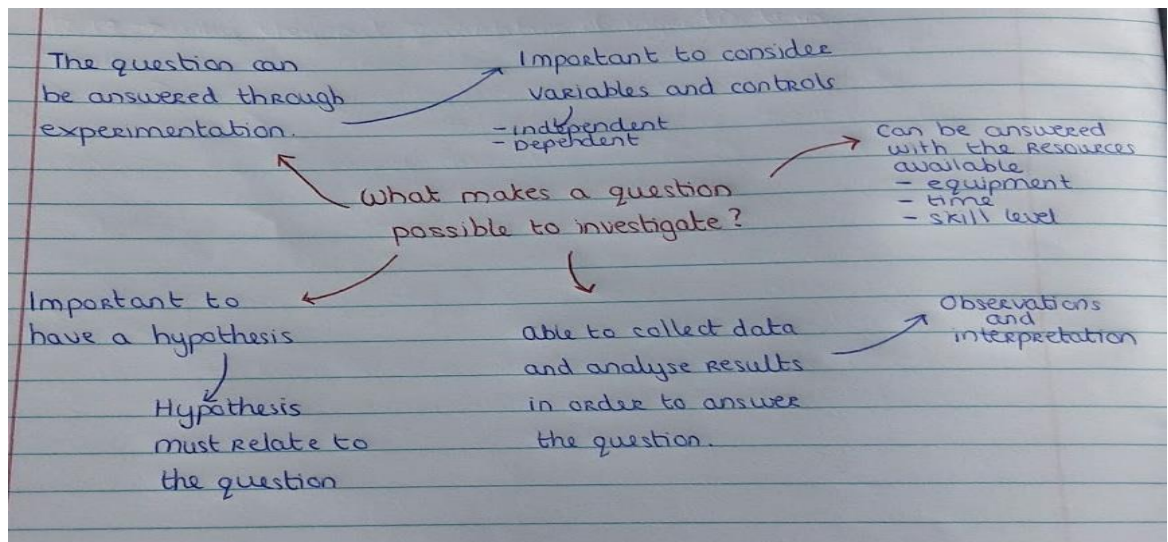 The question can
be answered through
experimentation.
Important to consider
variables and controls
- independent
- Dependent
can be answered
with the resources
available
- equipment
- time
- skill level
What makes a question
possible to investigate?
Important to
have a hypothesis
Hypothesis
must relate to
the question
able to collect data
and analyse results
in order to answer
the question.
Observations
and
interpretation